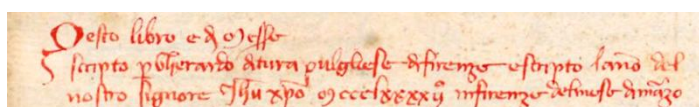 Questo libro e di messe
scripto p gherardo di tura pulgliese di firenze e scripto lano del
nostro signore Jhu xpo mcccLxxxxv infirenze del mese dimarzo